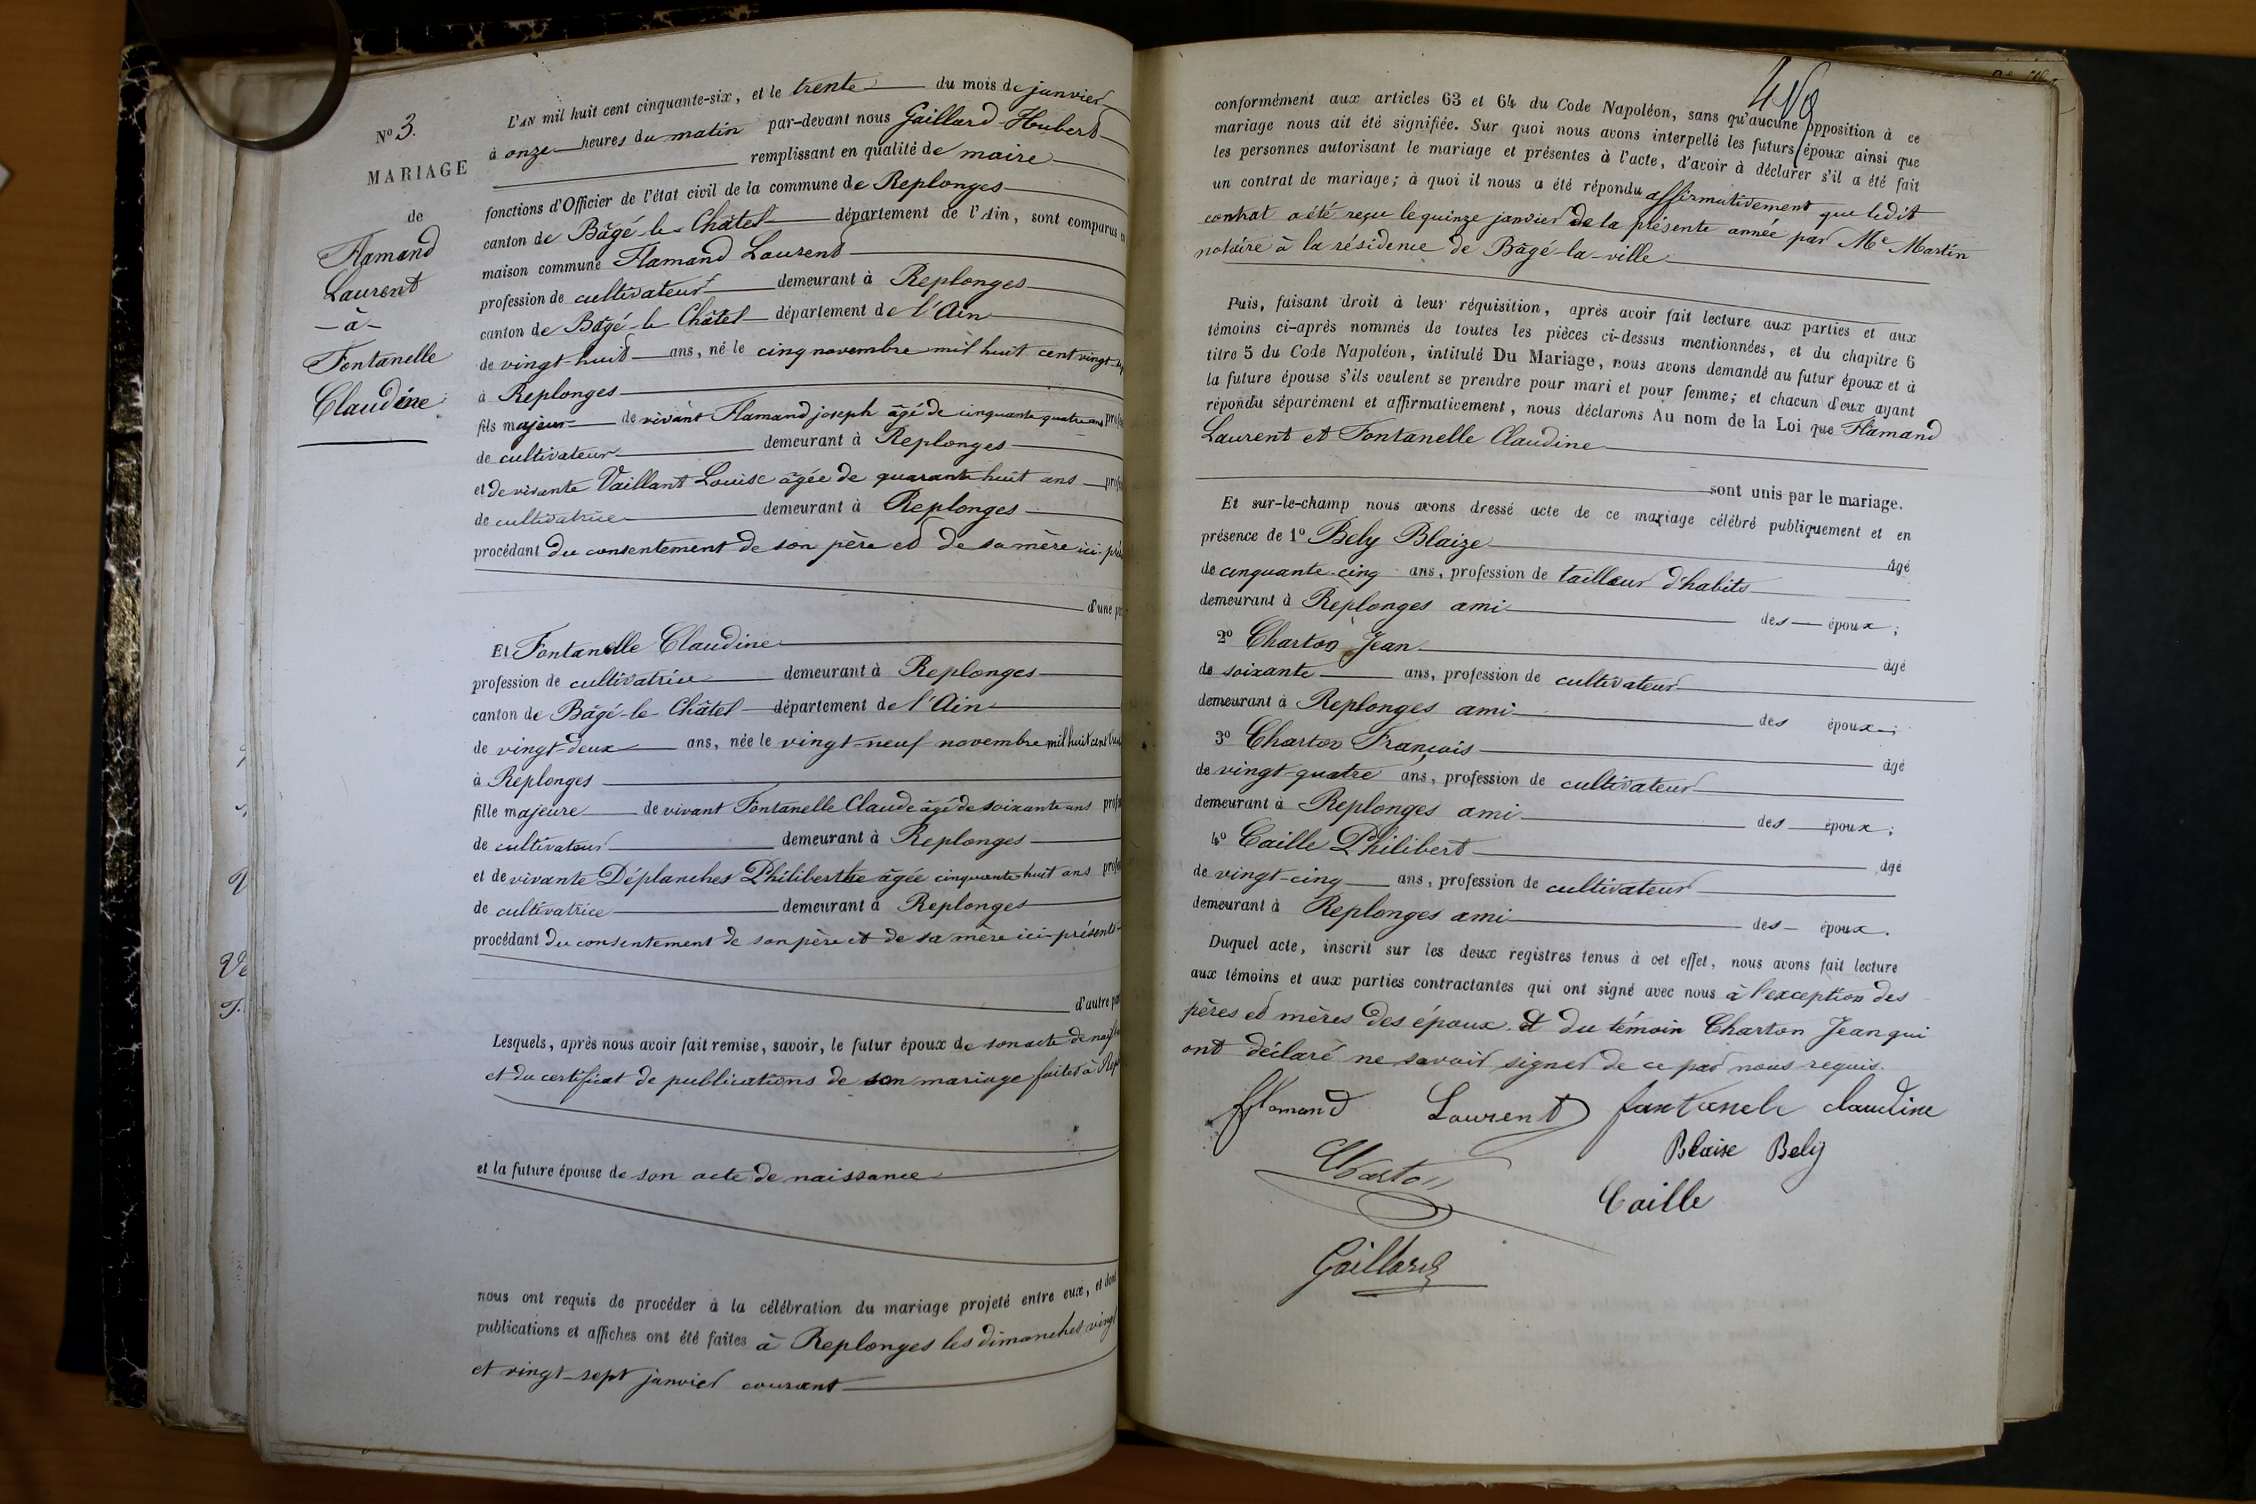 N° 3.
MARIAGE
de
Flamand
Laurent
- à -
Fontanelle
Claudine
L'AN mil huit cent cinquante-six, et le trente du mois de janvier
à onze heures du matin par-devant nous Gaillard Hubert
remplissant en qualité de maire
fonctions d'Officier de l'état civil de la commune de Replonges
canton de Bâgé-le-Châtel département de l'Ain, sont comparus
maison commune Flamand Laurent
profession de cultivateur demeurant à Replonges
canton de Bâgé-le Châtel département de l'Ain
de vingt-huit ans, né le cinq novembre mil huit cent vingt
à Replonges
fils majeur de vivant Flamand joseph âgé de cinquante quatre ans
de cultivateur demeurant à Replonges
et de vivante Vaillant Louise âgée de quarante huit ans
de cultivatrice demeurant à Replonges
procédant du consentement de son père et de sa mère ici
d'une
Et Fontanelle Claudine
profession de cultivatrice demeurant à Replonges
canton de Bâgé-le-Châtel département de l'Ain
de vingt-deux ans, née le vingt-neuf novembre mil huit cent
à Replonges
fille majeure de vivant Fontanelle Claude âgé de soixante ans
de cultivateur demeurant à Replonges
et de vivante Déplanches Philiberthe âgée cinquante-huit ans
de cultivatrice demeurant à Replonges
procédant du consentement de son père et de sa mère ici-présents
d'autre
Lesquels, après nous avoir fait remise, savoir, le futur époux de son acte de
et du certificat de publications de son mariage faites à
et la future épouse de son acte de naissance
nous ont requis de procéder à la célébration du mariage projeté entre eux, et dont
publications et affiches ont été faites à Replonges les dimanches vingt
et vingt-sept janvier courant
conformément aux articles 63 et 64 du Code Napoléon, sans qu'aucune opposition à ce
mariage nous ait été signifiée. Sur quoi nous avons interpellé les futurs époux ainsi que
les personnes autorisant le mariage et présentes à l'acte, d'avoir à déclarer s'il a été fait
un contrat de mariage; à quoi il nous a été répondu affirmativement que ledit
contrat a été reçu le quinze janvier de la présente année par Me Martin
notaire à la résidence de Bâgé-la-ville
Puis, faisant droit à leur réquisition, après avoir fait lecture aux parties et aux
témoins ci-après nommés de toutes les pièces ci-dessus mentionnées, et du chapitre 6
titre 5 du Code Napoléon, intitulé Du Mariage, nous avons demandé au futur époux et à
la future épouse s'ils veulent se prendre pour mari et pour femme; et chacun d'eux ayant
répondu séparément et affirmativement, nous déclarons Au nom de la Loi que Flamand
Laurent et Fontanelle Claudine
sont unis par le mariage.
Et sur-le-champ nous avons dressé acte de ce mariage célébré publiquement et en
présence de 1° Bely Blaize âgé
de cinquante-cinq ans, profession de tailleur d'habits
demeurant à Replonges ami des époux;
2° Charton Jean âgé
de soixante ans, profession de cultivateur
demeurant à Replonges ami des époux;
3° Charton François âgé
de vingt-quatre ans, profession de cultivateur
demeurant à Replonges ami des époux;
4° Caille Philibert âgé
de vingt-cinq ans, profession de cultivateur
demeurant à Replonges ami des époux.
Duquel acte, inscrit sur les deux registres tenus à cet effet, nous avons fait lecture
aux témoins et aux parties contractantes qui ont signé avec nous à l'exception des
pères et mères des époux et du témoin Charton Jean qui
ont déclaré ne savoir signer de ce par nous requis.
fflamand Laurent fantanele claudine
Blaise Bely
Charton
Caille
Gaillard